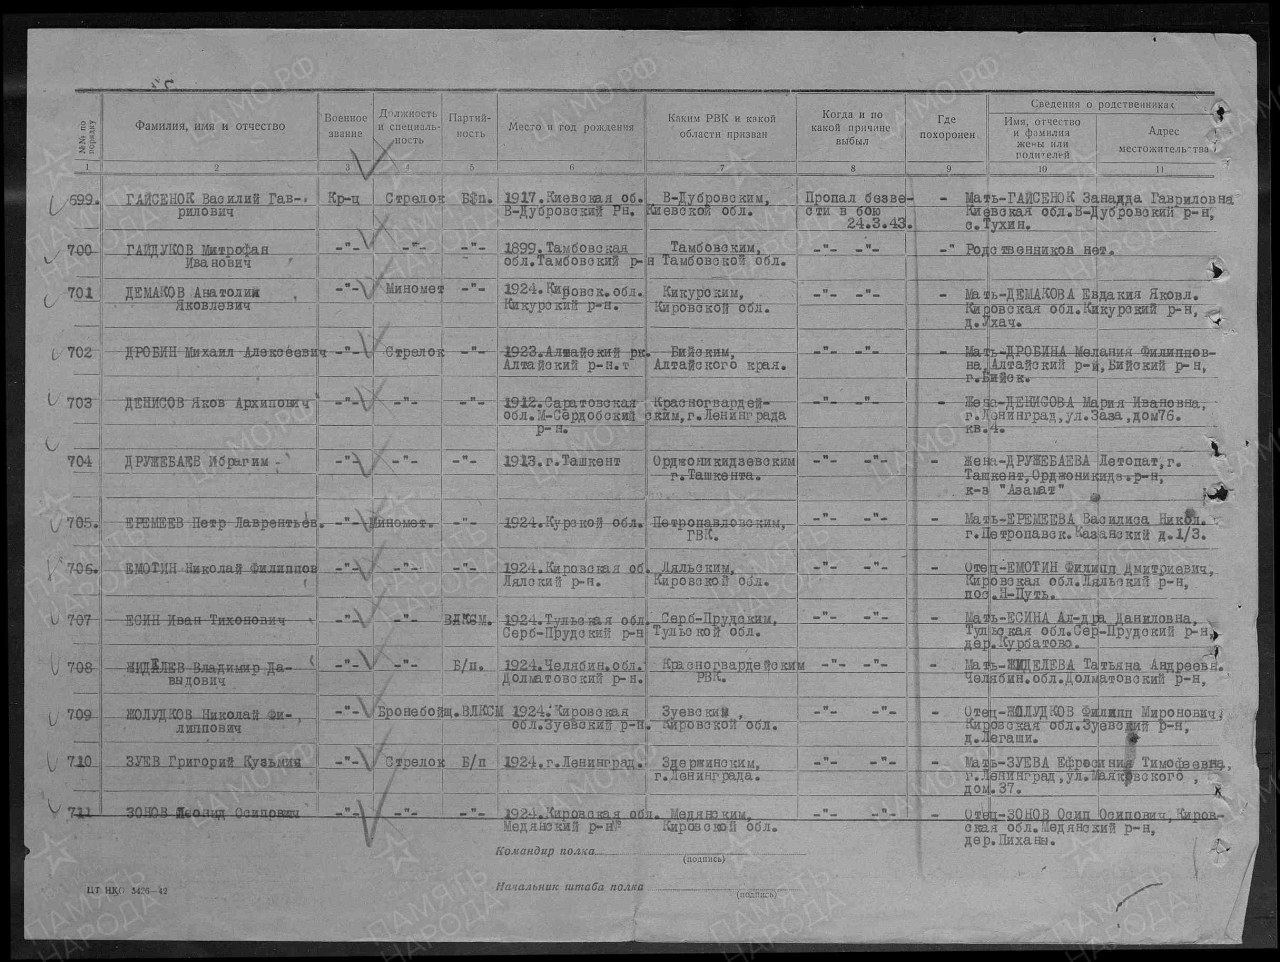 №№ по порядку
Фамилия, имя и отчество
Военное звание
Должность и специальность
Партийность
Место и год рождения
Каким РВК и какой области призван
Когда и по какой причине выбыл
Где похоронен
Сведения о родственниках
Имя, отчество и фамилия жены или родителей
Адрес местожительства
1 2 3 4 5 6 7 8 9 10 11
699. ГАЙСЕНОК Василий Гав- Кр-ц Стрелок Б/п. 1917. Киевская об. В-Дубровским, Пропал безве- - Мать-ГАЙСЕНОК Гавриловна
рилович В-Дубровский Рн. Киевской обл. сти в бою Киевская обл.В-Дубровский р-н,
24.3.43. с.Тухин.
700 ГАЙДУКОВ Митрофан -"- -"- -"- 1899.Тамбовская Тамбовским, -"- -"- -" Родственников нет.
Иванович обл.Тамбовский р-н Тамбовской обл.
701 ДЕМАКОВ Анатолий -"- Миномет -"- 1924.Кировск.обл. Кикурским, -"- -"- - Мать-ДЕМАКОВА Евдакия Яковл.
Яковлевич Кикурский р-н. Кировской обл. Кировская обл.Кикурский р-н,
д.Ухач.
702 ДРОБИН Михаил Алексеевич -"- Стрелок -"- 1923.Алтайский рк. Бийским, -"- -"- - Мать-ДРОБИНА Мелания Филиппов-
Алтайский р-н.т Алтайского края. на,Алтайский р-й,Бийский р-н,
г.Бийск.
703 ДЕНИСОВ Яков Архипович -"- -"- -"- 1912.Саратовская Красногвардей- -"- -"- - Жена-ДЕНИСОВА Мария Ивановна,
обл.М-Сердобский ским,г.Ленинграда г.Ленинград,ул.Заза,дом76.
р-н. кв.4.
704 ДРУЖЕБАЕВ Ибрагим -"- -"- -"- 1913.г.Ташкент Орджоникидзевским -"- -"- - Жена-ДРУЖЕБАЕВА Летопат,г.
г.Ташкента. Ташкент,Орджоникидз.р-н,
к-з "Азамат"
705. ЕРЕМЕЕВ Петр Лаврентьев. -"- Миномет. -"- 1924.Курской обл. Петропавловским, -"- -"- - Мать-ЕРЕМЕЕВА Василиса Никол.
ГВК. г.Петропавск.Казанский д.1/3.
706. ЕМОТИН Николай Филиппов -"- -"- -"- 1924.Кировская об. Ляльским, -"- -"- - Отец-ЕМОТИН Филипп Дмитриевич,
Лялский р-н. Кировской обл. Кировская обл.Ляльский р-н,
пос.Н-Путь.
707 ЕСИН Иван Тихонович -"- -"- ВЛКСМ. 1924.Тульская обл. Серб-Прудским, -"- -"- - Мать-ЕСИНА Ал-дра Даниловна,
Серб-Прудский р-н Тульской обл. Тульская обл.Сер-Прудский р-н,
дер.Курбатово.
708 ЖИДЕЛЕВ Владимир Да- -"- -"- Б/п. 1924.Челябин.обл. Красногвардейским -"- -"- - Мать-ЖИДЕЛЕВА Татьяна Андреевн.
выдович Долматовский р-н. РВК. Челябин.обл.Долматовский р-н,
709 ЖОЛУДКОВ Николай Фи- -"- Бронебойщ. ВЛКСМ 1924.Кировская Зуевский, -"- -"- - Отец-ЖОЛУДКОВ Филипп Миронович,
липпович обл.Зуевский р-н. Кировской обл. Кировская обл.Зуевский р-н,
д.Легаши.
710 ЗУЕВ Григорий Кузьмич -"- Стрелок Б/п 1924.г.Ленинград. Здержинским, -"- -"- - Мать-ЗУЕВА Ефросиния Тимофеевна,
г.Ленинграда. г.Ленинград,ул.Маяковского,
дом.37.
711 ЗОНОВ Леонид Осипович -"- -"- -"- 1924.Кировская обл. Медянским, -"- -"- - Отец-ЗОНОВ Осип Осипович,Киров-
Медянский р-н Кировской обл. ская обл.Медянский р-н,
дер.Пиханы.
Командир полка
(подпись)
Начальник штаба полка
(подпись)
ЦТ НКО 3426—42
ЦАМО.РФ
ПАМЯТЬ НАРОДА